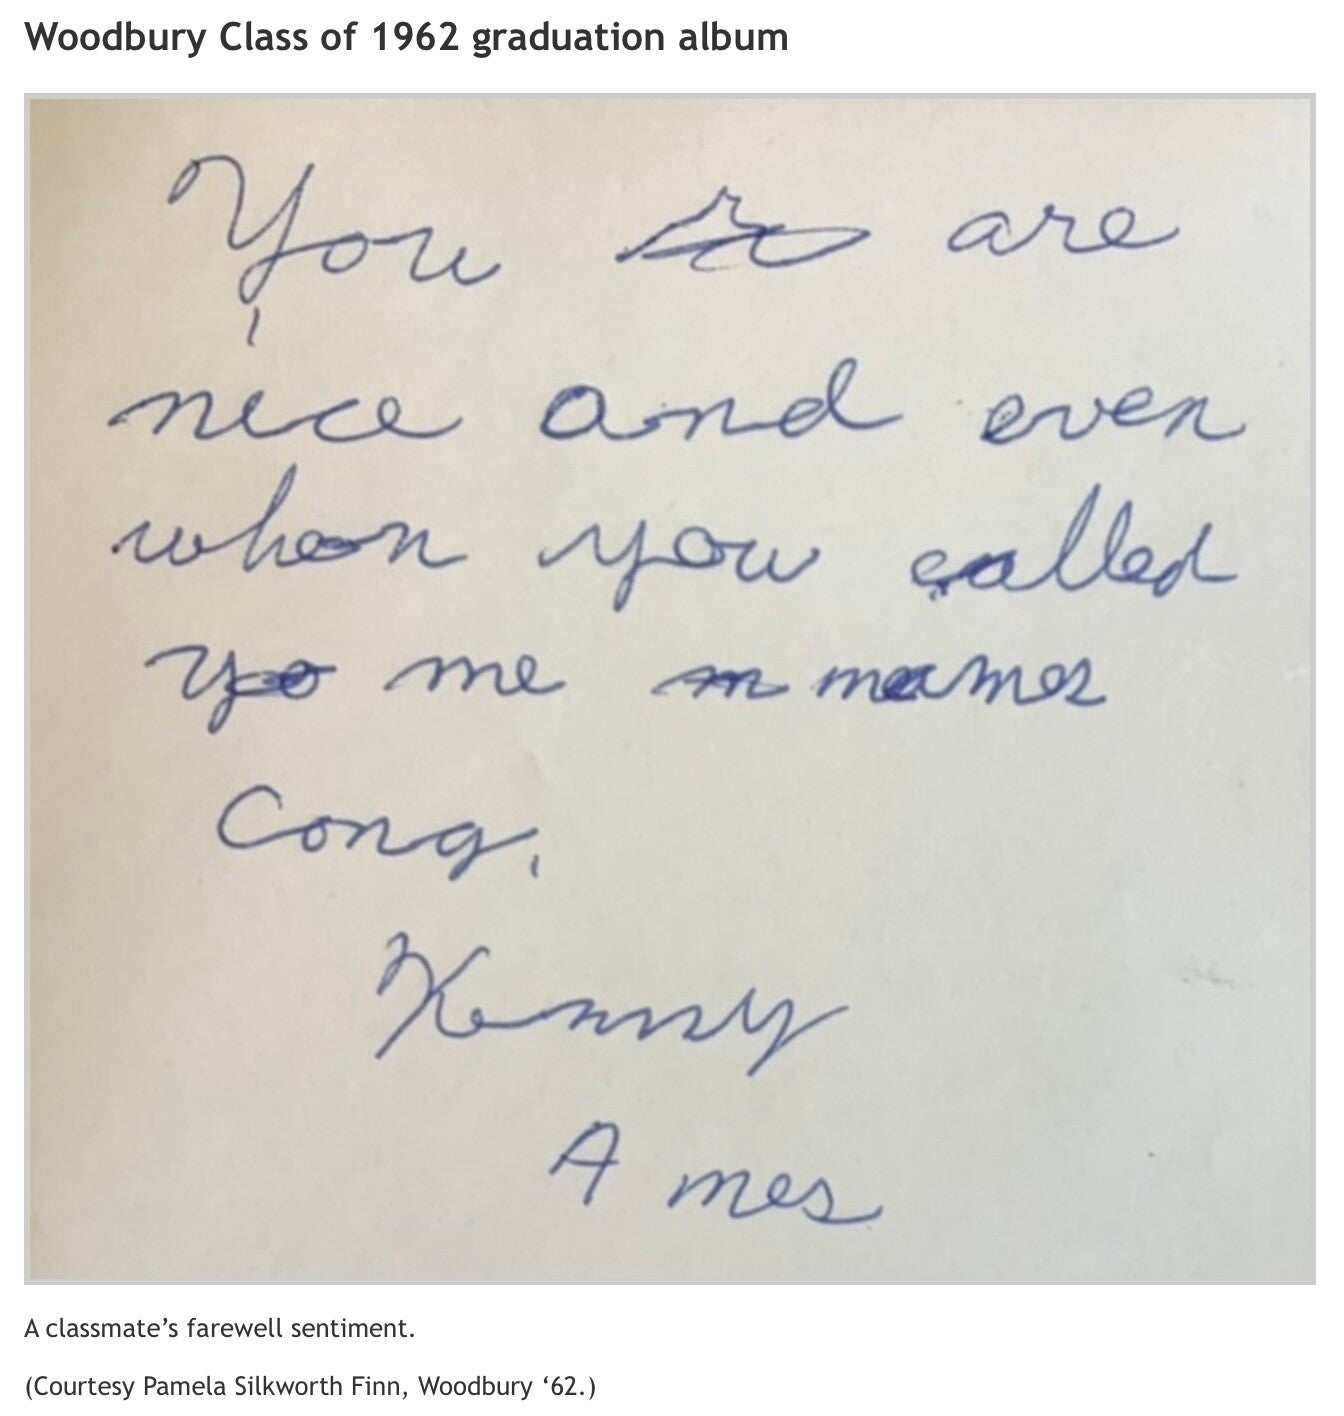 Woodbury Class of 1962 graduation album
You are
nice and even
when you called
yo me m names
Cong.
Kenny
Ames
A classmate’s farewell sentiment.
(Courtesy Pamela Silkworth Finn, Woodbury ‘62.)